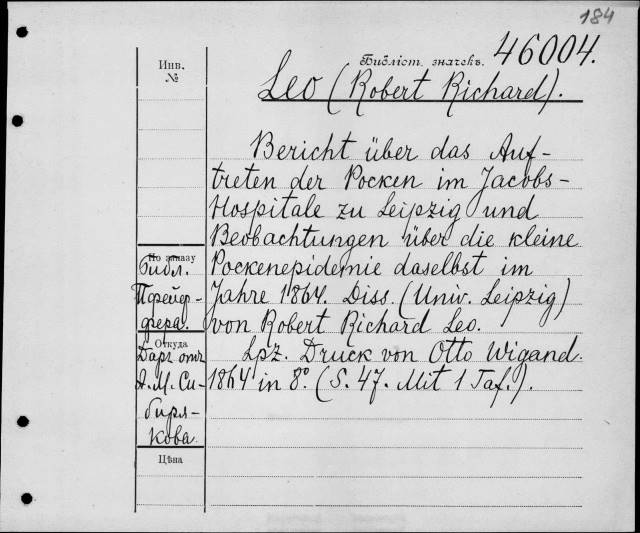 184
Библіот. значекъ. 46004.
Инв.
№
Leo (Robert Richard).
Bericht über das Auf-
treten der Pocken im Jacobs-
Hospitale zu Leipzig und
Beobachtungen über die kleine
Pockenepidemie daselbst im
Jahre 1864. Diss. (Univ. Leipzig)
von Robert Richard Leo.
Lpz. Druck von Otto Wigand.
1864 in 8º. (S. 47. Mit 1 Taf.).
По заказу
Библ.
Пфейф-
фера.
Откуда
Даръ отъ
А. М. Си-
биря-
кова.
Цѣна